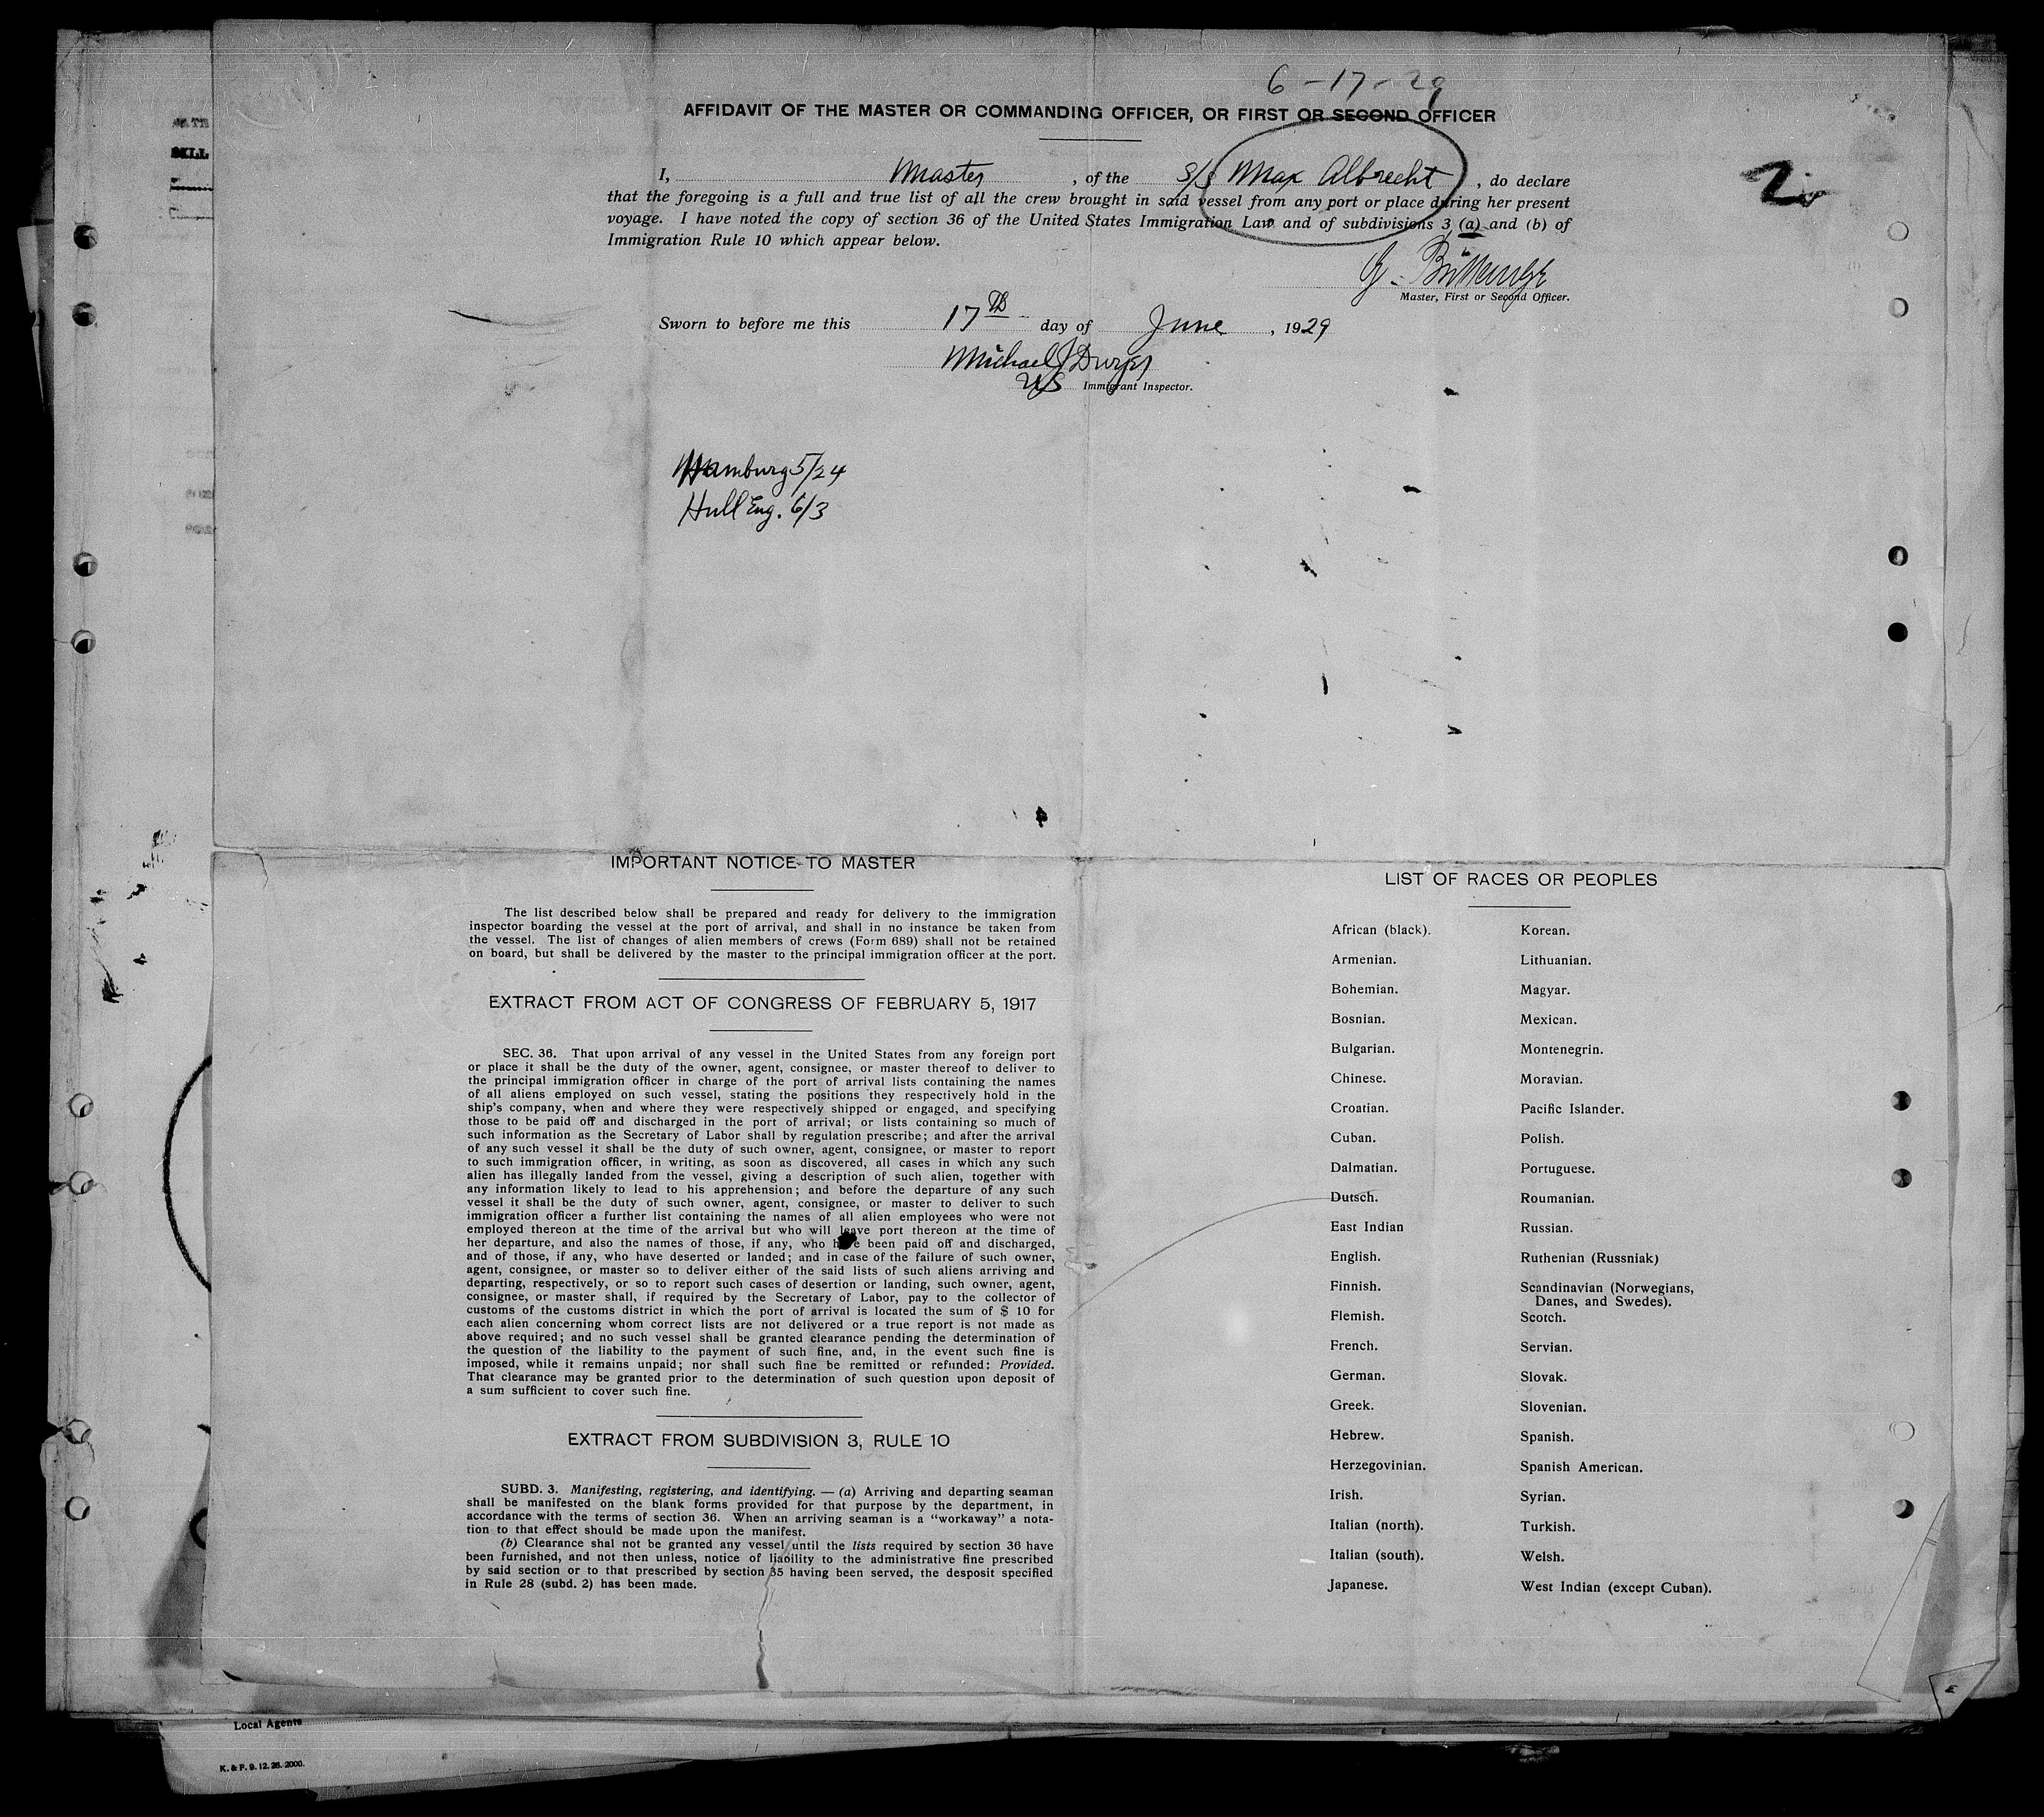 6-17-29
AFFIDAVIT OF THE MASTER OR COMMANDING OFFICER, OR FIRST OR SECOND OFFICER
I, Master, of the S/S Max Albrecht, do declare
that the foregoing is a full and true list of all the crew brought in said vessel from any port or place during her present
voyage. I have noted the copy of section 36 of the United States Immigration Law and of subdivisions 3 (a) and (b) of
Immigration Rule 10 which appear below.
2
Master, First or Second Officer.
Sworn to before me this 17th day of June, 1929
Michael J
US Immigrant Inspector.
Hamburg 5/24
Hull Eng. 6/3
IMPORTANT NOTICE TO MASTER
The list described below shall be prepared and ready for delivery to the immigration
inspector boarding the vessel at the port of arrival, and shall in no instance be taken from
the vessel. The list of changes of alien members of crews (Form 689) shall not be retained
on board, but shall be delivered by the master to the principal immigration officer at the port.
EXTRACT FROM ACT OF CONGRESS OF FEBRUARY 5, 1917
SEC. 36. That upon arrival of any vessel in the United States from any foreign port
or place it shall be the duty of the owner, agent, consignee, or master thereof to deliver to
the principal immigration officer in charge of the port of arrival lists containing the names
of all aliens employed on such vessel, stating the positions they respectively hold in the
ship's company, when and where they were respectively shipped or engaged, and specifying
those to be paid off and discharged in the port of arrival; or lists containing so much of
such information as the Secretary of Labor shall by regulation prescribe; and after the arrival
of any such vessel it shall be the duty of such owner, agent, consignee, or master to report
to such immigration officer, in writing, as soon as discovered, all cases in which any such
alien has illegally landed from the vessel, giving a description of such alien, together with
any information likely to lead to his apprehension; and before the departure of any such
vessel it shall be the duty of such owner, agent, consignee, or master to deliver to such
immigration officer a further list containing the names of all alien employees who were not
employed thereon at the time of the arrival but who will leave port thereon at the time of
her departure, and also the names of those, if any, who have been paid off and discharged,
and of those, if any, who have deserted or landed; and in case of the failure of such owner,
agent, consignee, or master so to deliver either of the said lists of such aliens arriving and
departing, respectively, or so to report such cases of desertion or landing, such owner, agent,
consignee, or master shall, if required by the Secretary of Labor, pay to the collector of
customs of the customs district in which the port of arrival is located the sum of $ 10 for
each alien concerning whom correct lists are not delivered or a true report is not made as
above required; and no such vessel shall be granted clearance pending the determination of
the question of the liability to the payment of such fine, and, in the event such fine is
imposed, while it remains unpaid; nor shall such fine be remitted or refunded: Provided.
That clearance may be granted prior to the determination of such question upon deposit of
a sum sufficient to cover such fine.
EXTRACT FROM SUBDIVISION 3, RULE 10
SUBD. 3. Manifesting, registering, and identifying. — (a) Arriving and departing seaman
shall be manifested on the blank forms provided for that purpose by the department, in
accordance with the terms of section 36. When an arriving seaman is a "workaway" a nota-
tion to that effect should be made upon the manifest.
(b) Clearance shal not be granted any vessel until the lists required by section 36 have
been furnished, and not then unless, notice of liability to the administrative fine prescribed
by said section or to that prescribed by section 35 having been served, the desposit specified
in Rule 28 (subd. 2) has been made.
LIST OF RACES OR PEOPLES
African (black).
Armenian.
Bohemian.
Bosnian.
Bulgarian.
Chinese.
Croatian.
Cuban.
Dalmatian.
Dutsch.
East Indian
English.
Finnish.
Flemish.
French.
German.
Greek.
Hebrew.
Herzegovinian.
Irish.
Italian (north).
Italian (south).
Japanese.
Korean.
Lithuanian.
Magyar.
Mexican.
Montenegrin.
Moravian.
Pacific Islander.
Polish.
Portuguese.
Roumanian.
Russian.
Ruthenian (Russniak)
Scandinavian (Norwegians,
Danes, and Swedes).
Scotch.
Servian.
Slovak.
Slovenian.
Spanish.
Spanish American.
Syrian.
Turkish.
Welsh.
West Indian (except Cuban).
Local Agents
K. & F. 9. 12. 28. 2000.